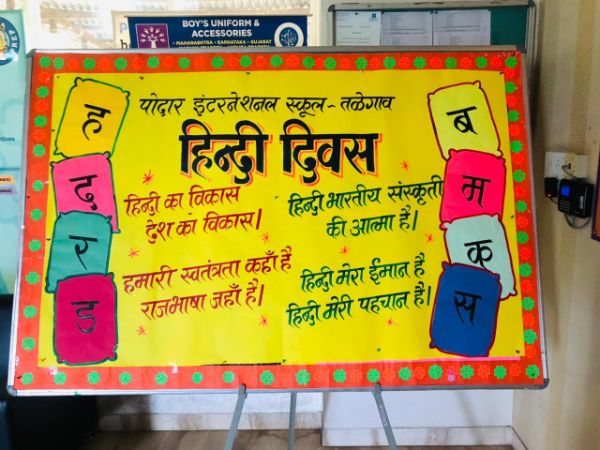 BOY'S UNIFORM &
ACCESSORIES
MAHARASHTRA - KARNATAKA - GUJARAT
पोदार इंटरनेशनल स्कूल - तळेगाव
हिन्दी दिवस
हिन्दी का विकास
देश का विकास।
हमारी स्वतंत्रता कहाँ है
राजभाषा जहाँ है।
हिन्दी भारतीय संस्कृती
की आत्मा है।
हिन्दी मेरा ईमान है
हिन्दी मेरी पहचान है।
ह
द
र
ड
ब
म
क
स